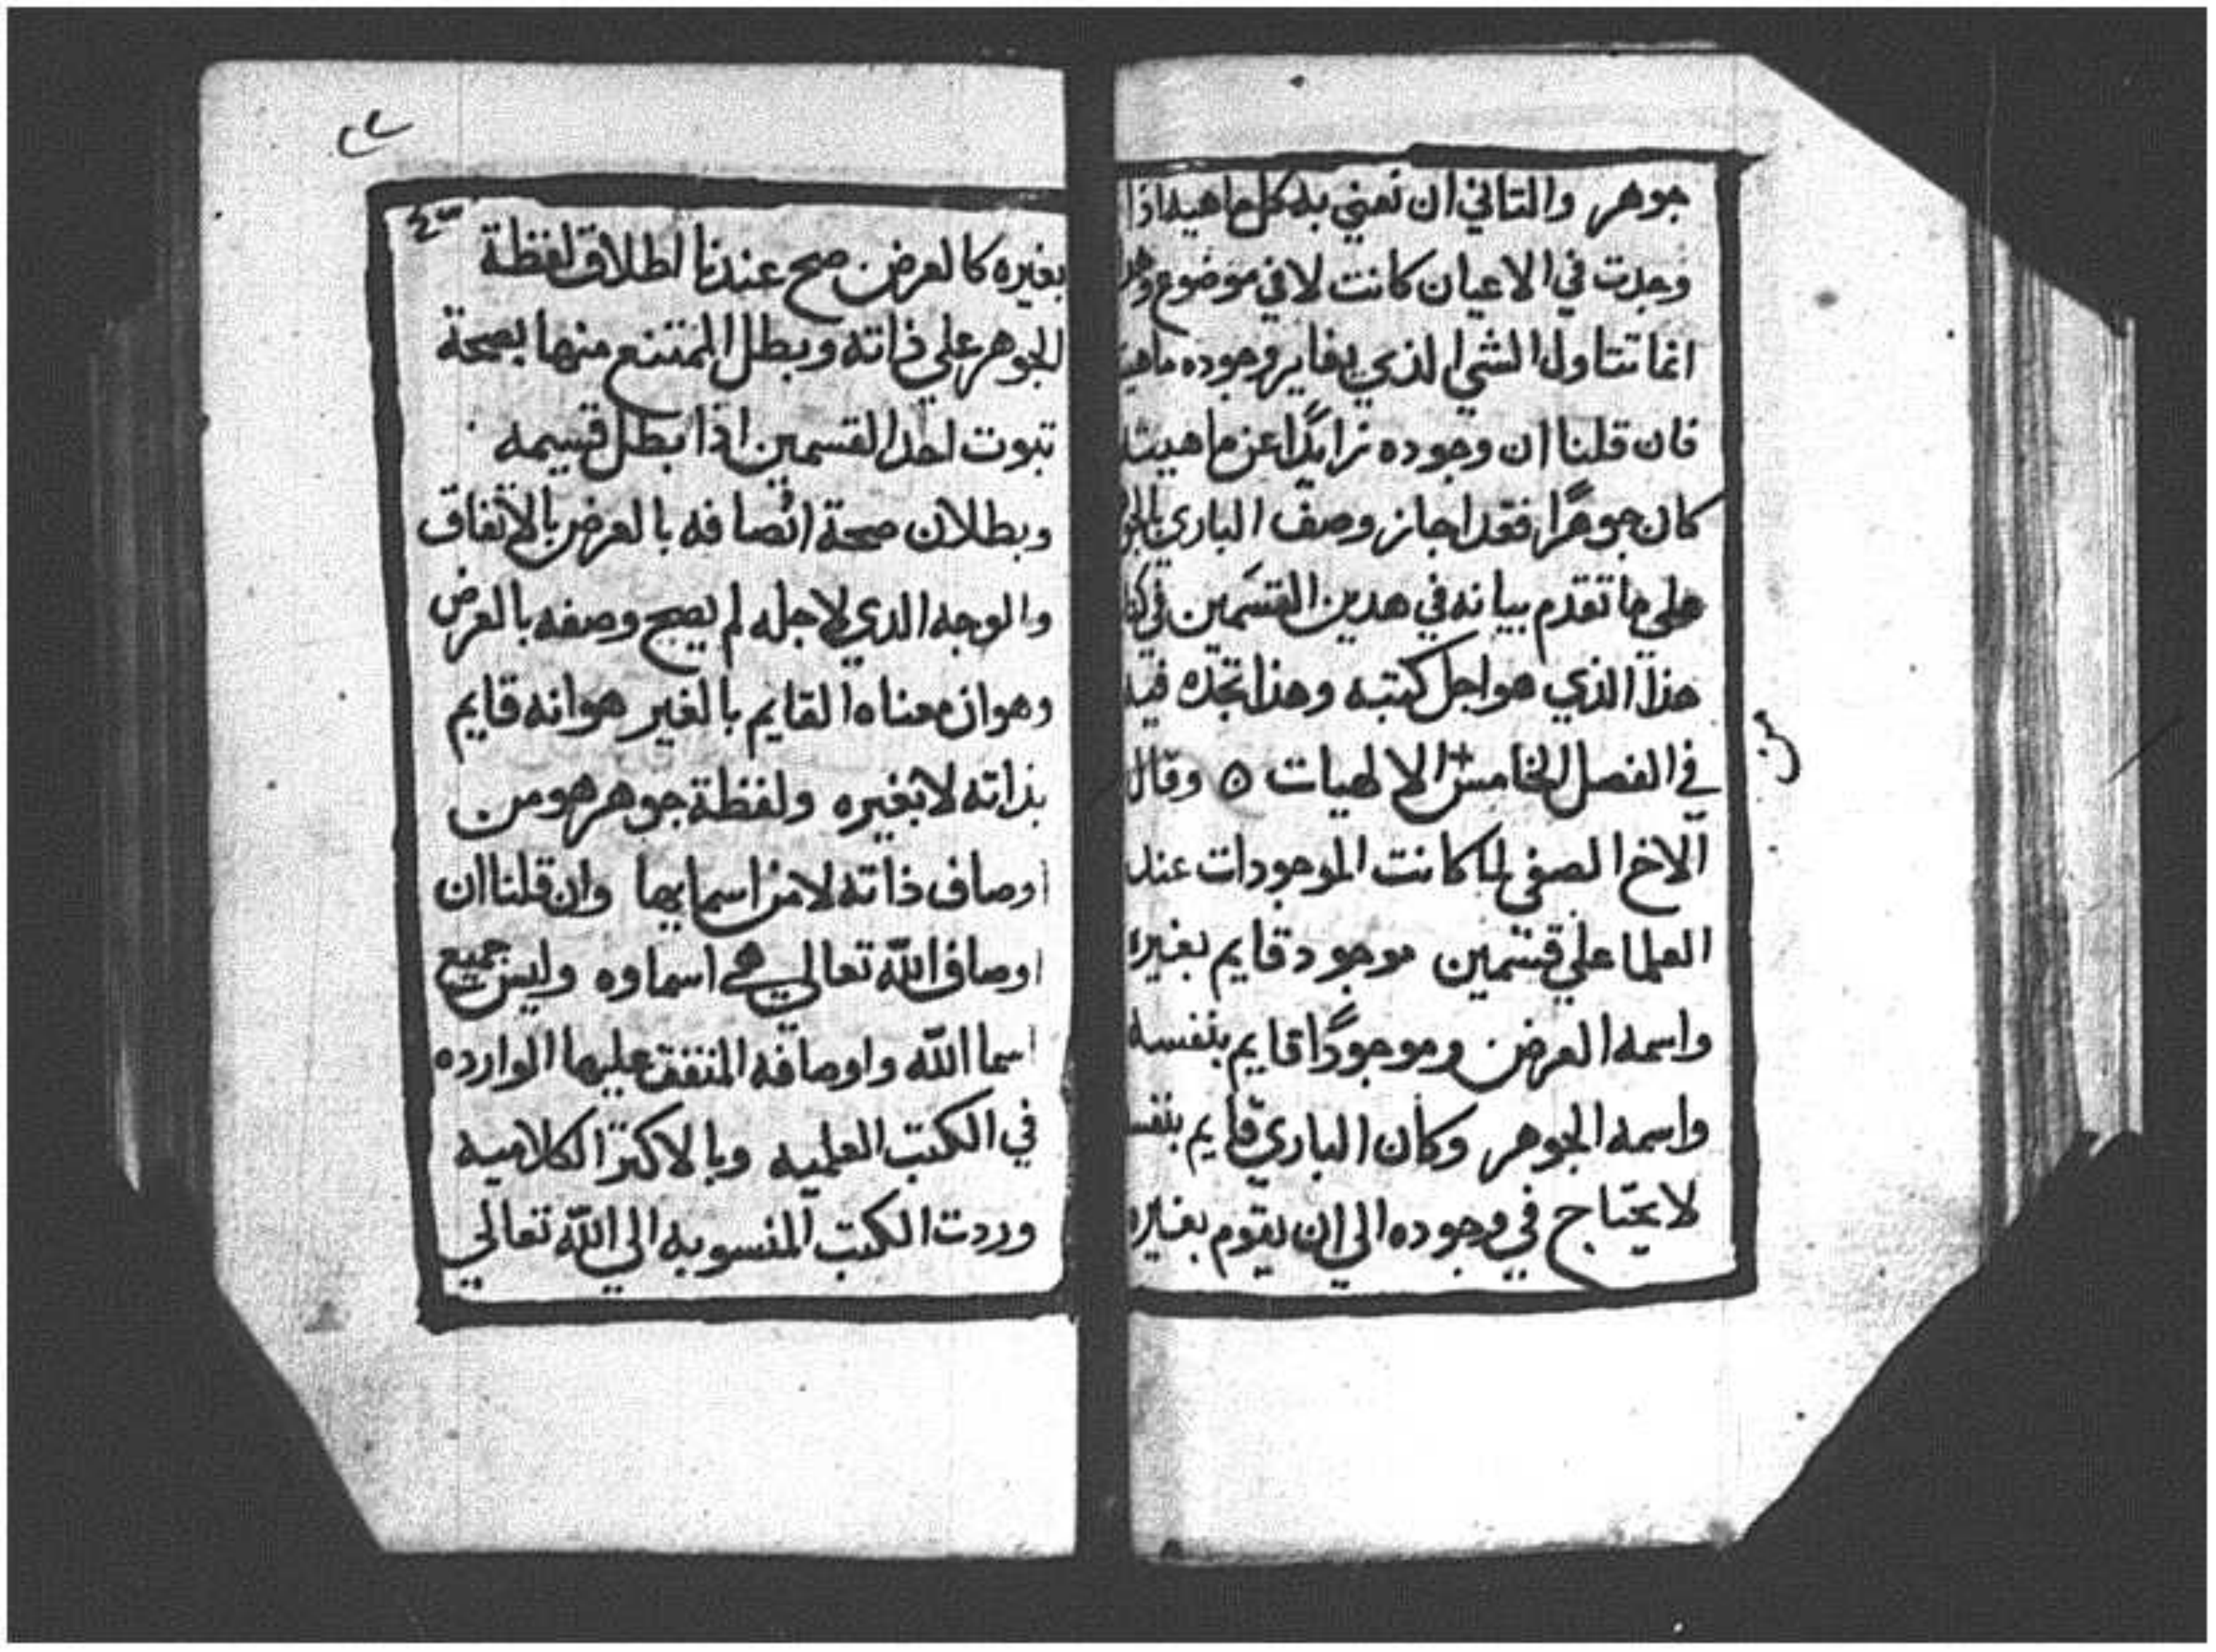 جوهر والتاني ان نعني به كل ماهيه اذا
وجدت في الاعيان كانت لا في موضوع
انما تتناول الشي الذي يغاير وجوده
فان قلنا ان وجوده زايدًا عن ماهيته
كان جوهرًا فقد اجاز وصف الباري
علي ما تقدم بيانه في هدين القسمين في
هذا الذي هو اجل كتبه وهذا تجده فيه
في الفصل الخامس الالهيات ه وقال
من
الاخ الصفي لما كانت الموجودات عند
العلما علي قسمين موجود قايم بغيره
واسمه العرض وموجودًا قايم بنفسه
واسمه الجوهر وكان الباري قايم
لا يحتاج في وجوده الي ان يقوم بغيره
بغيره كالعرض صح عندنا اطلاق لفظة
الجوهر علي ذاته وبطل الممتنع منها بصحة
تبوت احد القسمين اذا بطل قسيمه
وبطلان صحة اتصافه بالعرض بالاتفاق
والوجه الدي لاجله لم يصح وصفه بالعرض
وهو ان معناه القايم بالغير هو انه قايم
بذاته لا بغيره ولفظة جوهر هو من
اوصاف ذاته لا من اسمايها وان قلنا ان
اوصاف الله تعالي هي اسماوه وليس جميع
اسما الله واوصافه المتفق عليها الوارده
في الكتب العلميه وبالاكتر الكلاميه
وردت الكتب المنسوبه الي الله تعالي